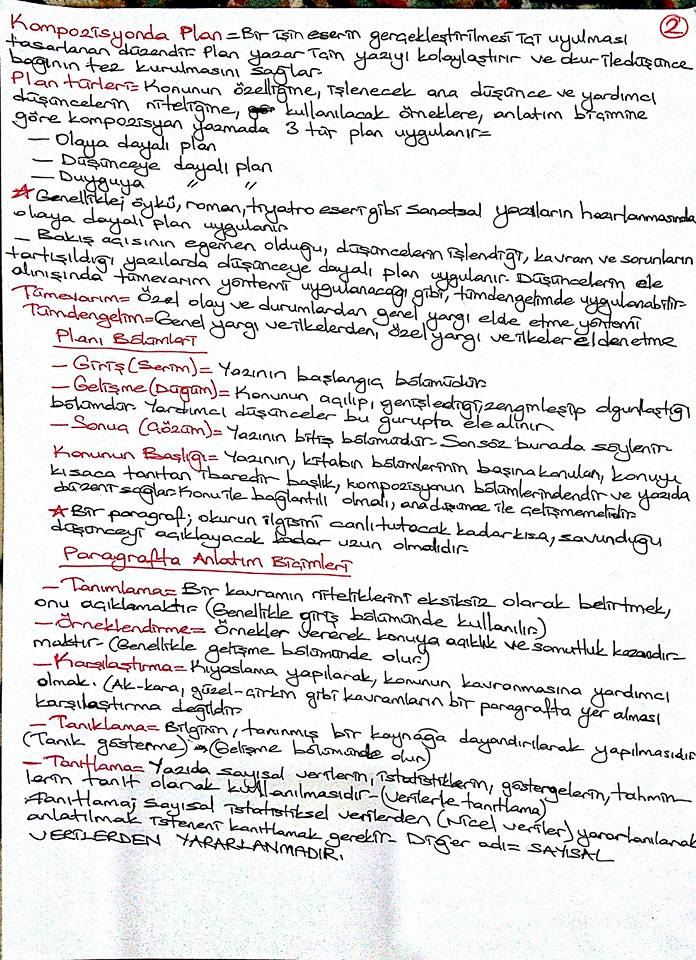 ②
Kompozisyonda Plan = Bir işin eserin gerçekleştirilmesi içi uyulması
tasarlanan düzendir. Plan yazar için yazıyı kolaylaştırır ve okur iledüşünce
bağının tez kurulmasını sağlar.
Plan türleri = Konunun özelliğine, işlenecek ana düşünce ve yardımcı
düşüncelerin niteliğine, kullanılacak örneklere, anlatım biçimine
göre kompozisyon yazmada 3 tür plan uygulanır =
— Olaya dayalı plan
— Düşünceye dayalı plan
— Duyguya " "
☆ Genellikle; öykü, roman, tiyatro eseri gibi sanatsal yazıların hazırlanmasında
olaya dayalı plan uygulanır.
— Bakış açısının egemen olduğu, düşüncelerin işlendiği, kavram ve sorunların
tartışıldığı yazılarda düşünceye dayalı plan uygulanır. Düşüncelerin ele
alınışında tümevarım yöntemi uygulanacağı gibi, tümdengelimde uygulanabilir.
Tümevarım = Özel olay ve durumlardan genel yargı elde etme yöntemi
Tümdengelim = Genel yargı ve ilkelerden, özel yargı ve ilkeler elden etme
Planı Bölümleri
— Giriş (Serim) = Yazının başlangıç bölümüdür.
— Gelişme (Düğüm) = Konunun açılıp, genişlediği, zenginleşip olgunlaştığı
bölümdür. Yardımcı düşünceler bu gurupta ele alınır.
— Sonuç (Çözüm) = Yazının bitiş bölümüdür. Sonsöz burada söylenir.
Konunun Başlığı = Yazının, kitabın bölümlerinin başına konulan, konuyu
kısaca tanıtan ibaredir başlık, kompozisyonun bölümlerindendir ve yazıda
düzeni sağlar. Konu ile bağlantılı olmalı, anadüşünce ile çelişmemelidir.
☆ Bir paragraf; okurun ilgisini canlı tutacak kadar kısa, savunduğu
düşünceyi açıklayacak kadar uzun olmalıdır.
Paragrafta Anlatım Biçimleri
— Tanımlama = Bir kavramın niteliklerini eksiksiz olarak belirtmek,
onu açıklamaktır (Genellikle giriş bölümünde kullanılır)
— Örneklendirme = Örnekler vererek konuya açıklık ve somutluk kazandır-
maktır. (Genellikle gelişme bölümünde olur)
— Karşılaştırma = Kıyaslama yapılarak, konunun kavranmasına yardımcı
olmak. (Ak-kara, güzel-çirkin gibi kavramların bir paragrafta yer alması
karşılaştırma değildir.
— Tanıklama = Bilginin, tanınmış bir kaynağa dayandırılarak yapılmasıdır
(Tanık gösterme) → (Gelişme bölümünde olur)
— Tanıtlama = Yazıda sayısal verilerin, istatistiklerin, göstergelerin, tahmin-
lerin tanıt olarak kullanılmasıdır. (Verilerle tanıtlama)
Tanıtlama; sayısal istatistiksel verilerden (Nicel veriler) yararlanılarak
anlatılmak isteneni kanıtlamak gerekir. Diğer adı = SAYISAL
VERİLERDEN YARARLANMADIR.